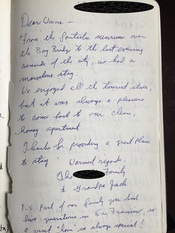 Dear Anne –
From the fantastic museums over
the Bay Bridge to the last evening
sounds of the city, we had a
marvelous stay
We enjoyed all the tourist sites,
but it was always a pleasure
to come back to our clean,
homey apartment
Thanks for providing a great place
to stay! Warmest regards,
The Family
& Grandpa Jack
P.S. Part of our family you had
in San Francisco, so
is always special!